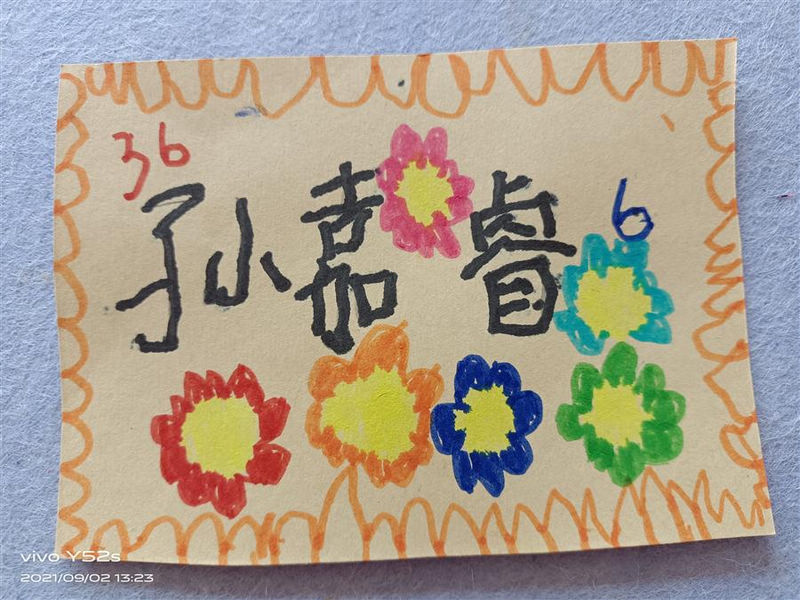 36
孙嘉睿
6
vivo Y52s
2021/09/02 13:23